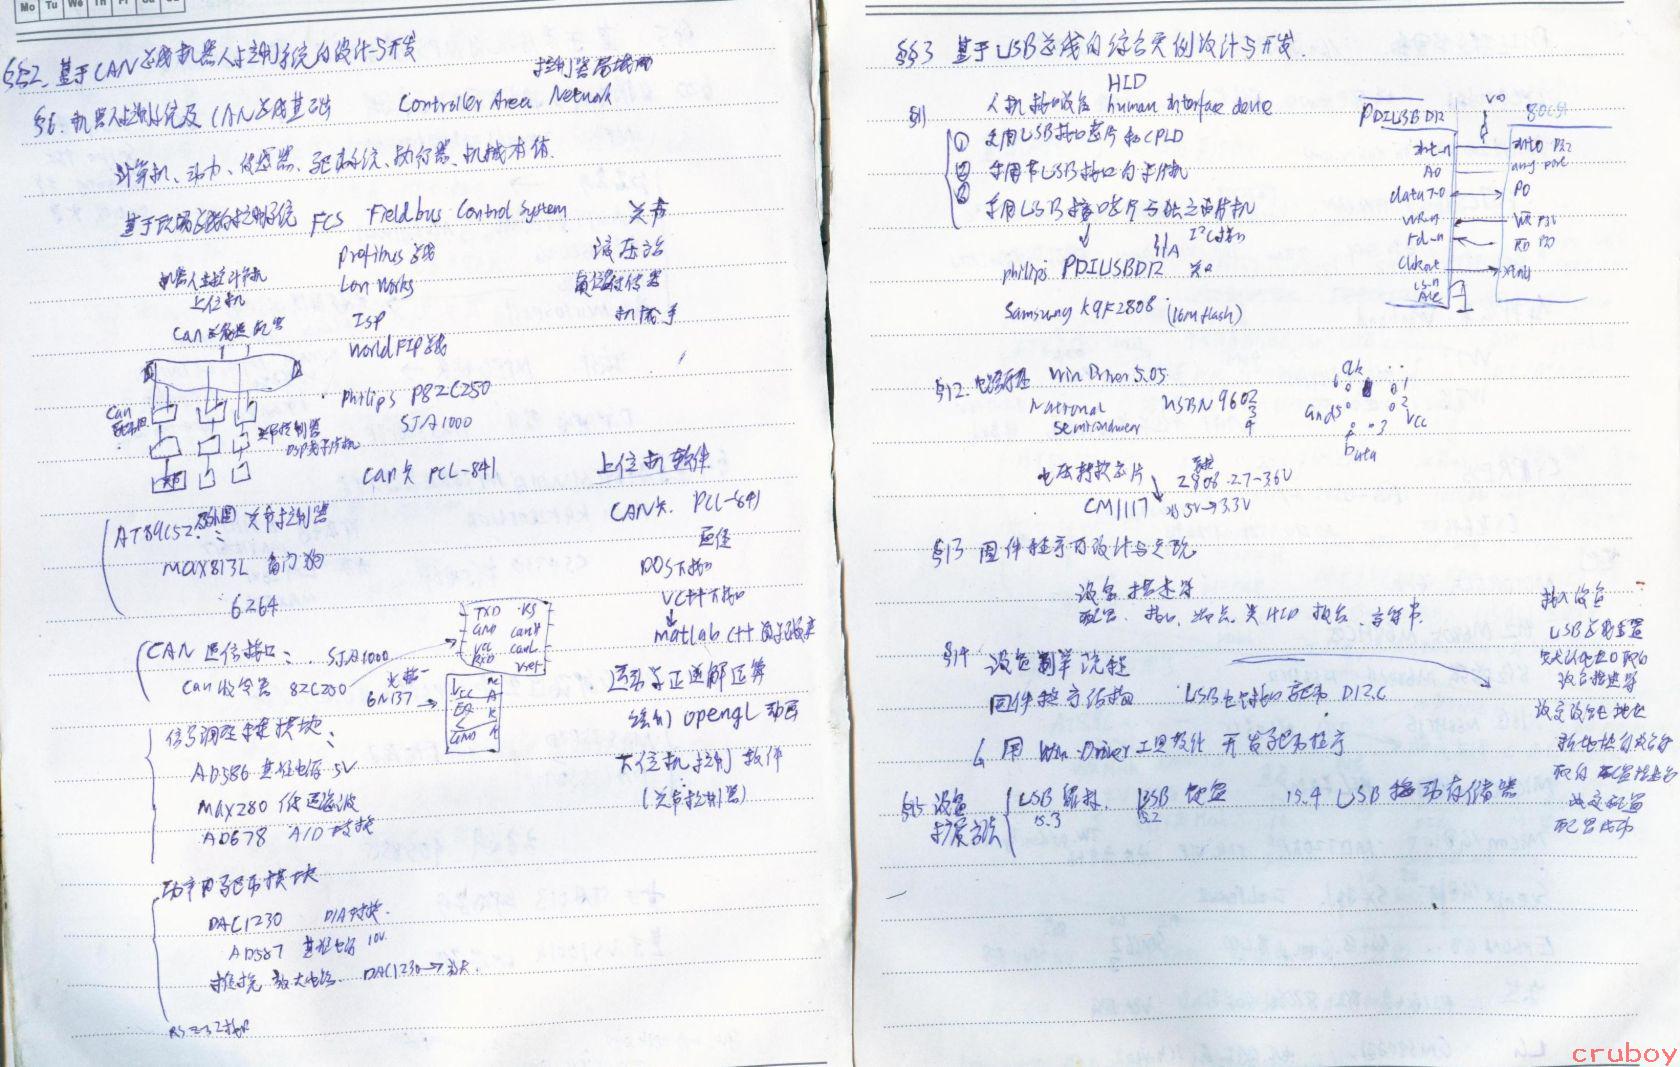 Mo Tu We Th Fr Sa Su
§§2. 基于CAN总线机器人控制系统的设计与开发
控制器局域网
§6. 机器人控制系统及CAN总线基础 Controller Area Network
计算机、动力、传感器、驱动系统、执行器、机械本体.
基于现场总线的控制系统 FCS Fieldbus Control System 关节
Profibus 总线 液压站
机器人主控计算机 Lon Works
上位机 ISP 机械手
Can World FIP 总线
Philips P82C250
SJA1000
Can
关节控制器
DSP或单片机
Can卡 PCL-841 上位机软件
AT89C52 关节控制器 CAN卡. PCL-841
MAX813L 看门狗 通信
6264 DOS下接口
VC++下接口
matlab C++
CAN 通信接口: SJA1000
Can收发器 82C250
光耦 6N137
TXD RS
GND CANH
VCC CANL
RXD Vref
VCC
GND
运动学正逆解运算
绘制 OpenGL 动画
信号调理转换模块:
AD586 基准电压 5V 下位机控制软件
MAX280 低通滤波 (关节控制器)
AD678 A/D 转换
功率与驱动模块
DAC1230 D/A转换.
AD587 基准电压 10V
推挽放大电路 DAC1230→
RS232接口
§§3 基于USB总线的综合实例设计与开发.
HID
§11 人机接口设备 human interface device
① 采用USB接口芯片和CPLD
② 采用带USB接口的单片机
③ 采用USB接口芯片与独立单片机
I²C接口
philips PDIUSBD12
Samsung K9F2808 (16M flash)
PDIUSBD12 8051
int_n int0 P3.2
A0 any port
data7-0 P0
WR_n WR P3.6
rd_n RD
Clkout Xtal1
cs_n
ALE
§12. 电路原理 WinDriver 5.05
National USBN 9602
Semiconductor 3
4
clk
6 1
Gnd 5 2 Vcc
4 3
Data
电压转换芯片 2808 2.7-3.6V
CM1117 5V→3.3V
§13 固件程序的设计与实现
设备描述符
配置、接口、端点、类HID 报告、字符串.
§14 设备列举流程
固件程序结构 USB总线接口驱动 D12.C
用 Win Driver工具软件 开发驱动程序
接入设备
USB总线重置
默认地址0 取得
设备描述符
设定设备地址
新地址
取得配置描述符
设定配置
配置成功
§15 设备扩展方法 USB鼠标 15.3 USB键盘 15.2 15.4 USB移动存储器
cruboy